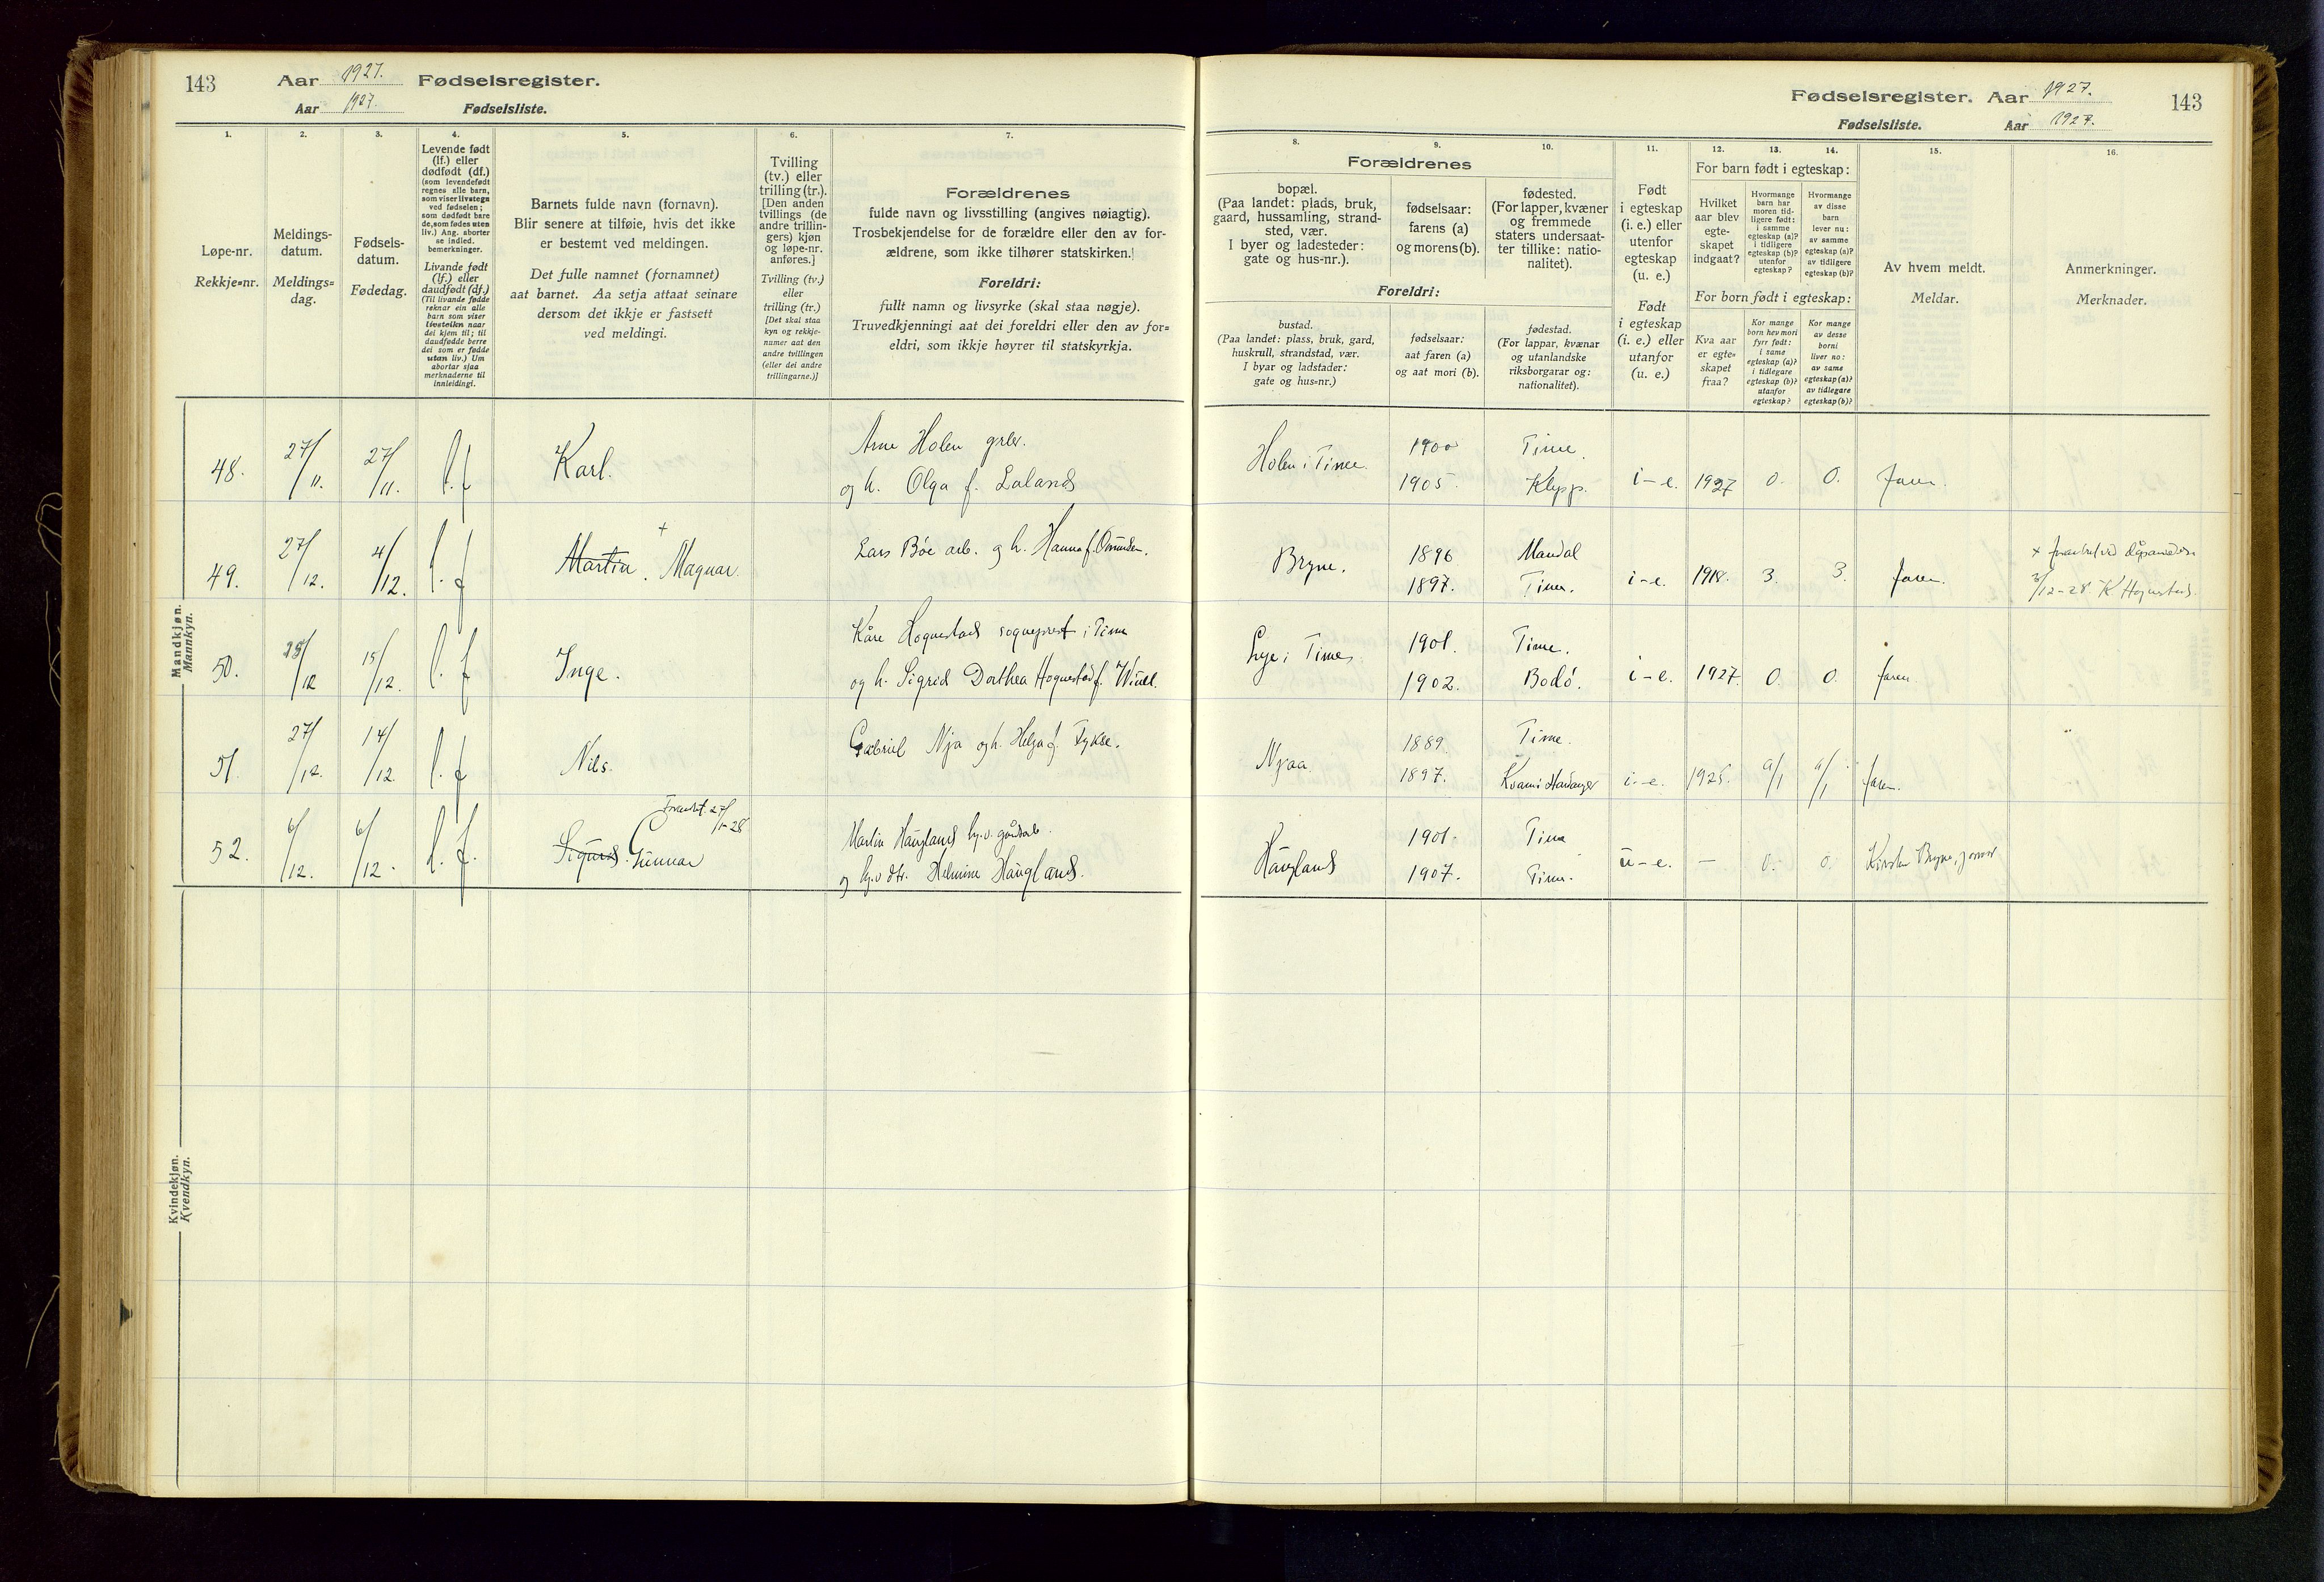 143 Aar 1927. Fødselsregister.
Aar 1927. Fødselsliste.
Fødselsregister. Aar 1927. 143
Fødselsliste. Aar 1927.
1. 2. 3. 4. 5. 6. 7.
Løpe-nr.
Rekkje-nr.
Meldings-
datum.
Meldings-
dag.
Fødsels-
datum.
Fødedag.
Levende født
(lf.) eller
dødfødt (df.)
(som levendefødt
regnes alle barn,
som viser livstegn
ved fødselen;
som dødfødt bare
de, som fødes uten
liv.) Ang. aborter
se indled.
bemerkninger.
Livande født
(lf.) eller
daudfødt (df.)
(Til livande fødde
reknar ein alle
barn som viser
livsteikn naar
dei kjem til; til
daudfødde berre
dei som er fødde
utan liv.) Um
abortar sjaa
merknaderne til
innleidingi.
Barnets fulde navn (fornavn).
Blir senere at tilføie, hvis det ikke
er bestemt ved meldingen.
Det fulle namnet (fornamnet)
aat barnet. Aa setja attaat seinare
dersom det ikkje er fastsett
ved meldingi.
Tvilling
(tv.) eller
trilling (tr.).
[Den anden
tvillings (de
andre trillin-
gers) kjøn
og løpe-nr.
anføres.]
Tvilling (tv.)
eller
trilling (tr.)
[Det skal staa
kyn og rekkje-
numer aat den
andre tvillingen
(eller dei andre
trillingarne.)]
Forældrenes
fulde navn og livsstilling (angives nøiagtig).
Trosbekjendelse for de forældre eller den av for-
ældrene, som ikke tilhører statskirken.
Foreldri:
fullt namn og livsyrke (skal staa nøgje).
Truvedkjenningi aat dei foreldri eller den av for-
eldri, som ikkje høyrer til statskyrkja.
8. 9. 10. 11. 12. 13. 14. 15. 16.
Forældrenes
bopæl.
(Paa landet: plads, bruk,
gaard, hussamling, strand-
sted, vær.
I byer og ladesteder:
gate og hus-nr.).
fødselsaar:
farens (a)
og morens (b).
fødested.
(For lapper, kvæner
og fremmede
staters undersaat-
ter tillike: natio-
nalitet).
Foreldri:
bustad.
(Paa landet: plass, bruk, gard,
huskrull, strandstad, vær.
I byar og ladstader:
gate og hus-nr.)
fødselsaar:
aat faren (a)
og aat mori (b).
fødestad.
(For lappar, kvænar
og utanlandske
riksborgarar og:
nationalitet).
Født
i egteskap
(i. e.) eller
utenfor
egteskap
(u. e.)
Født
i egteskap
(i. e.) eller
utanfor
(u. e.)
For barn født i egteskap:
Hvilket
aar blev
egte-
skapet
indgaat?
Hvormange
barn har
moren tid-
ligere født:
i samme
egteskap (a)?
i tidligere
egteskap (b)?
utenfor
egteskap?
Hvormange
av disse
barn
lever nu:
av samme
egteskap (a)?
av tidligere
egteskap (b)?
For born født i egteskap:
Kva aar
er egte-
skapet
fraa?
Kor mange
born hev mori
fyrr født:
i same
egteskap (a)?
i tidlegare
egteskap (b)?
utanfor
egteskap?
Kor mange
av desse
borni
liver no:
av same
egteskap (a)?
av tidlegare
egteskap (b)?
Av hvem meldt.
Meldar.
Anmerkninger.
Merknader.
Mandkjøn.
Mannkyn.
48. 27/11. 27/11. l.f Karl. Arne Holen grbr.
og h. Olga f. Laland
Holen i Time. 1900 Time.
1905. Klepp. i-e. 1927 0. 0. faren.
49. 27/12. 4/12. l.f Martin. + Magnar. Lars Bøe arb. og h. Hanna f. Omundsen.
Bryne. 1896 Mandal
1897. Time. i-e. 1918. 3. 3. faren. + forandret ved dåpsanmeldelsen
3/12-28 K Hognestad.
50. 28/12 15/12. l.f Inge. Kåre Hognestad sogneprest i Time
og h. Sigrid Dorthea Hognestad f.
Lye i Time. 1901. Time.
1902. Bodö. i-e. 1927. 0. 0. faren.
51. 27/12. 14/12. l.f Nils. Gabriel Nja og h. Helga f. Tykse.
Njaa 1889. Time.
1897. Kvam i Hardanger i-e. 1925. a/1 a/1 faren.
52. 6/12. 6/12. l.f. Sigurd. Gunnar Forandret 27/1-28
Martin Haugland hj.v. gårdarb.
og hj.v dtr. Helmine Haugland.
Haugland 1901. Time
1907. Time. u-e. — 0. 0. Kirsten Bryne, jormor
Kvindekjøn.
Kvendkyn.